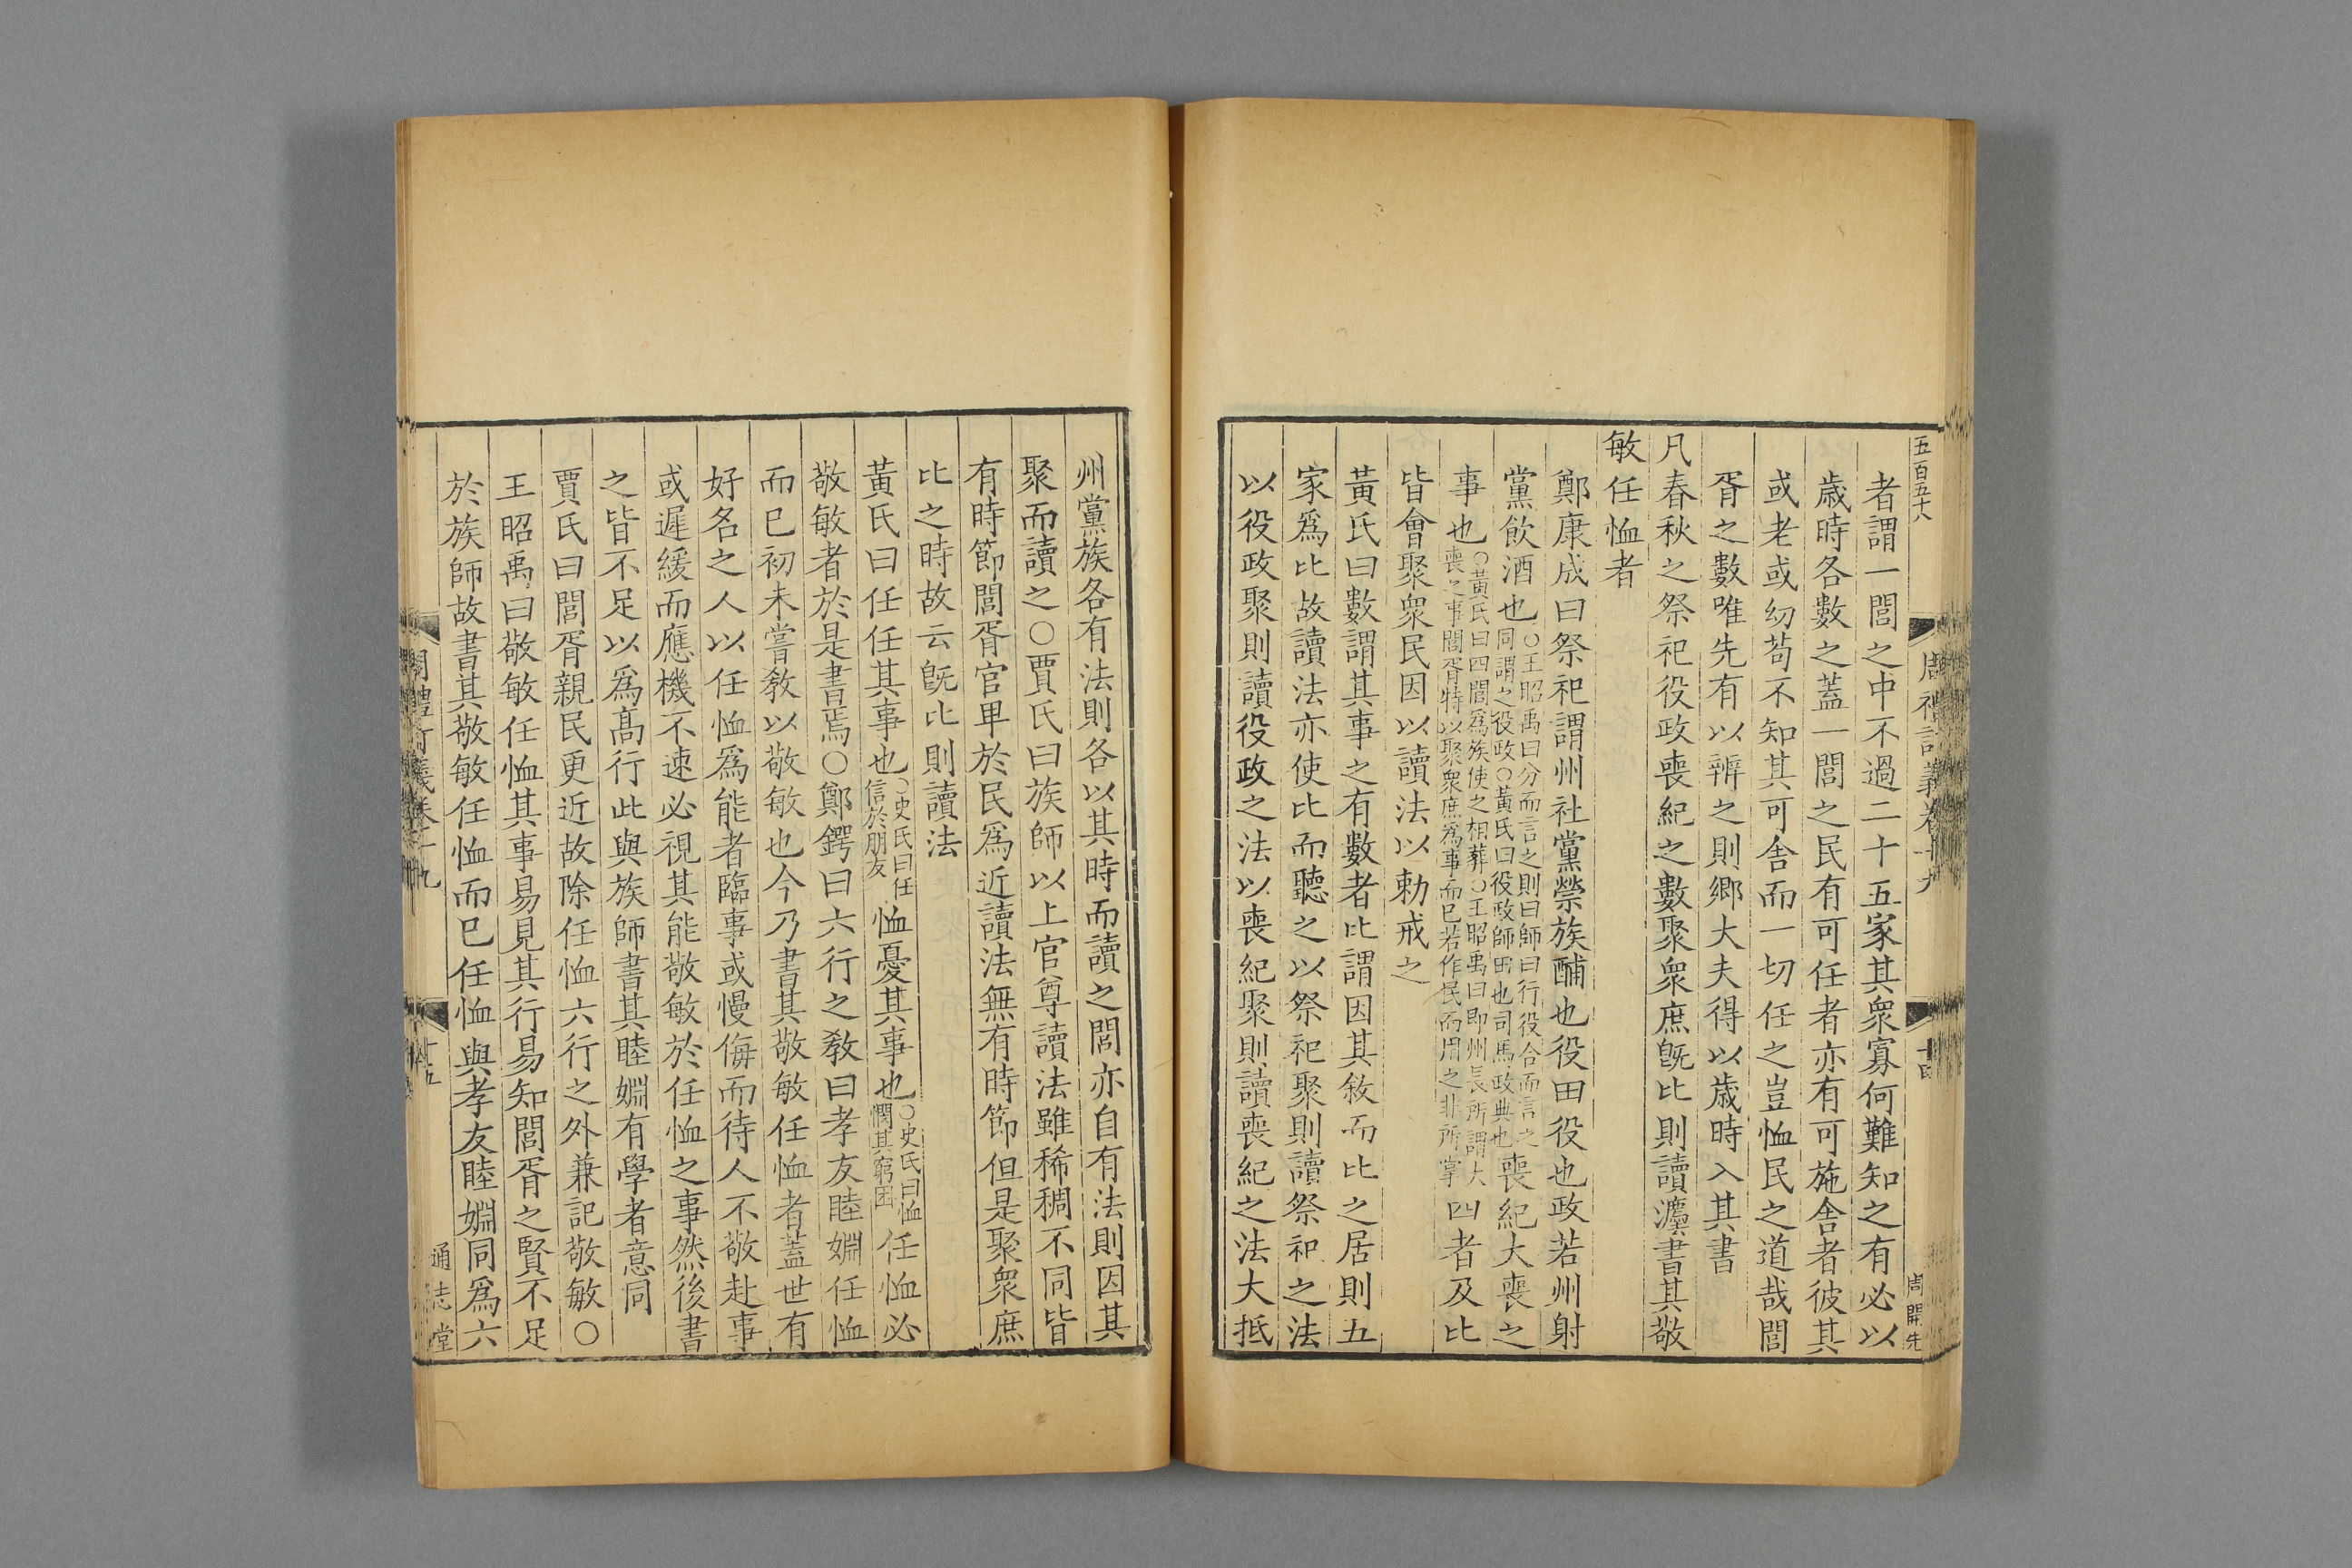 五百五十八
周禮訂義卷十九
十四
周開先
者謂一閭之中不過二十五家其衆寡何難知之有必以
歲時各數之蓋一閭之民有可任者亦有可施舍者彼其
或老或幼苟不知其可舍而一切任之豈恤民之道哉閭
胥之數唯先有以辨之則鄉大夫得以歲時入其書
凡春秋之祭祀役政喪紀之數聚衆庶旣比則讀灋書其敬
敏任恤者
鄭康成曰祭祀謂州社黨禜族酺也役田役也政若州射
黨飲酒也○王昭禹曰分而言之則曰師曰行役合而言之同謂之役政○黃氏曰役政師田也司馬政典也喪紀大喪之
事也○黃氏曰四閭爲族使之相葬○王昭禹曰卽州長所謂大喪之事閭胥特以聚衆庶爲事而已若作民而用之非所掌四者及比
皆會聚衆民因以讀法以勅戒之
黃氏曰數謂其事之有數者比謂因其敘而比之居則五
家爲比故讀法亦使比而聽之以祭祀聚則讀祭祀之法
以役政聚則讀役政之法以喪紀聚則讀喪紀之法大抵
州黨族各有法則各以其時而讀之閭亦自有法則因其
聚而讀之○賈氏曰族師以上官尊讀法雖稀稠不同皆
有時節閭胥官卑於民爲近讀法無有時節但是聚衆庶
比之時故云旣比則讀法
黃氏曰任任其事也○史氏曰任信於朋友恤憂其事也○史氏曰恤憫其窮困任恤必
敬敏者於是書焉○鄭鍔曰六行之敎曰孝友睦婣任恤
而已初未嘗敎以敬敏也今乃書其敬敏任恤者蓋世有
好名之人以任恤爲能者臨事或慢侮而待人不敬赴事
或遲緩而應機不速必視其能敬敏於任恤之事然後書
之皆不足以爲高行此與族師書其睦婣有學者意同
賈氏曰閭胥親民更近故除任恤六行之外兼記敬敏○
王昭禹曰敬敏任恤其事易見其行易知閭胥之賢不足
於族師故書其敬敏任恤而已任恤與孝友睦婣同爲六
周禮訂義卷十九
十五
通志堂